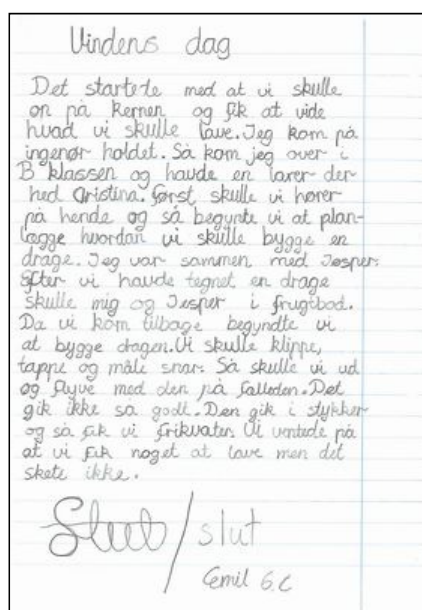 Vindens dag
Det startete med at vi skulle
op på kernen og fik at vide
hvad vi skulle lave. Jeg kom på
ingenør holdet. Så kom jeg over i
B klassen og havde en lærer der
hed Cristina. først skulle vi hører
på hende og så begynte vi at plan-
lægge hvordan vi skulle bygge en
drage. Jeg var sammen med Jesper.
Efter vi havde tegnet en drage
skulle mig og Jesper i frugtbod.
Da vi kom tilbage begyndte vi
at bygge dragen. Vi skulle klippe,
tappe og måle snor. Så skulle vi ud
og flyve med den på falleden. Det
gik ikke så godt. Den gik i stykker
og så fik vi frikvater. Vi ventede på
at vi fik noget at lave men det
skete ikke.
Slut / slut
Cemil 6.C